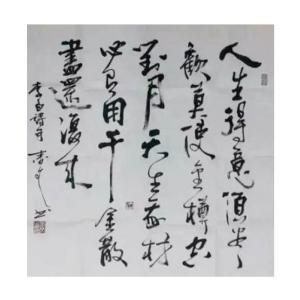 人生得意須尽
歡莫使金樽空
對月天生我材
必有用千金散
盡還復來
李白詩句